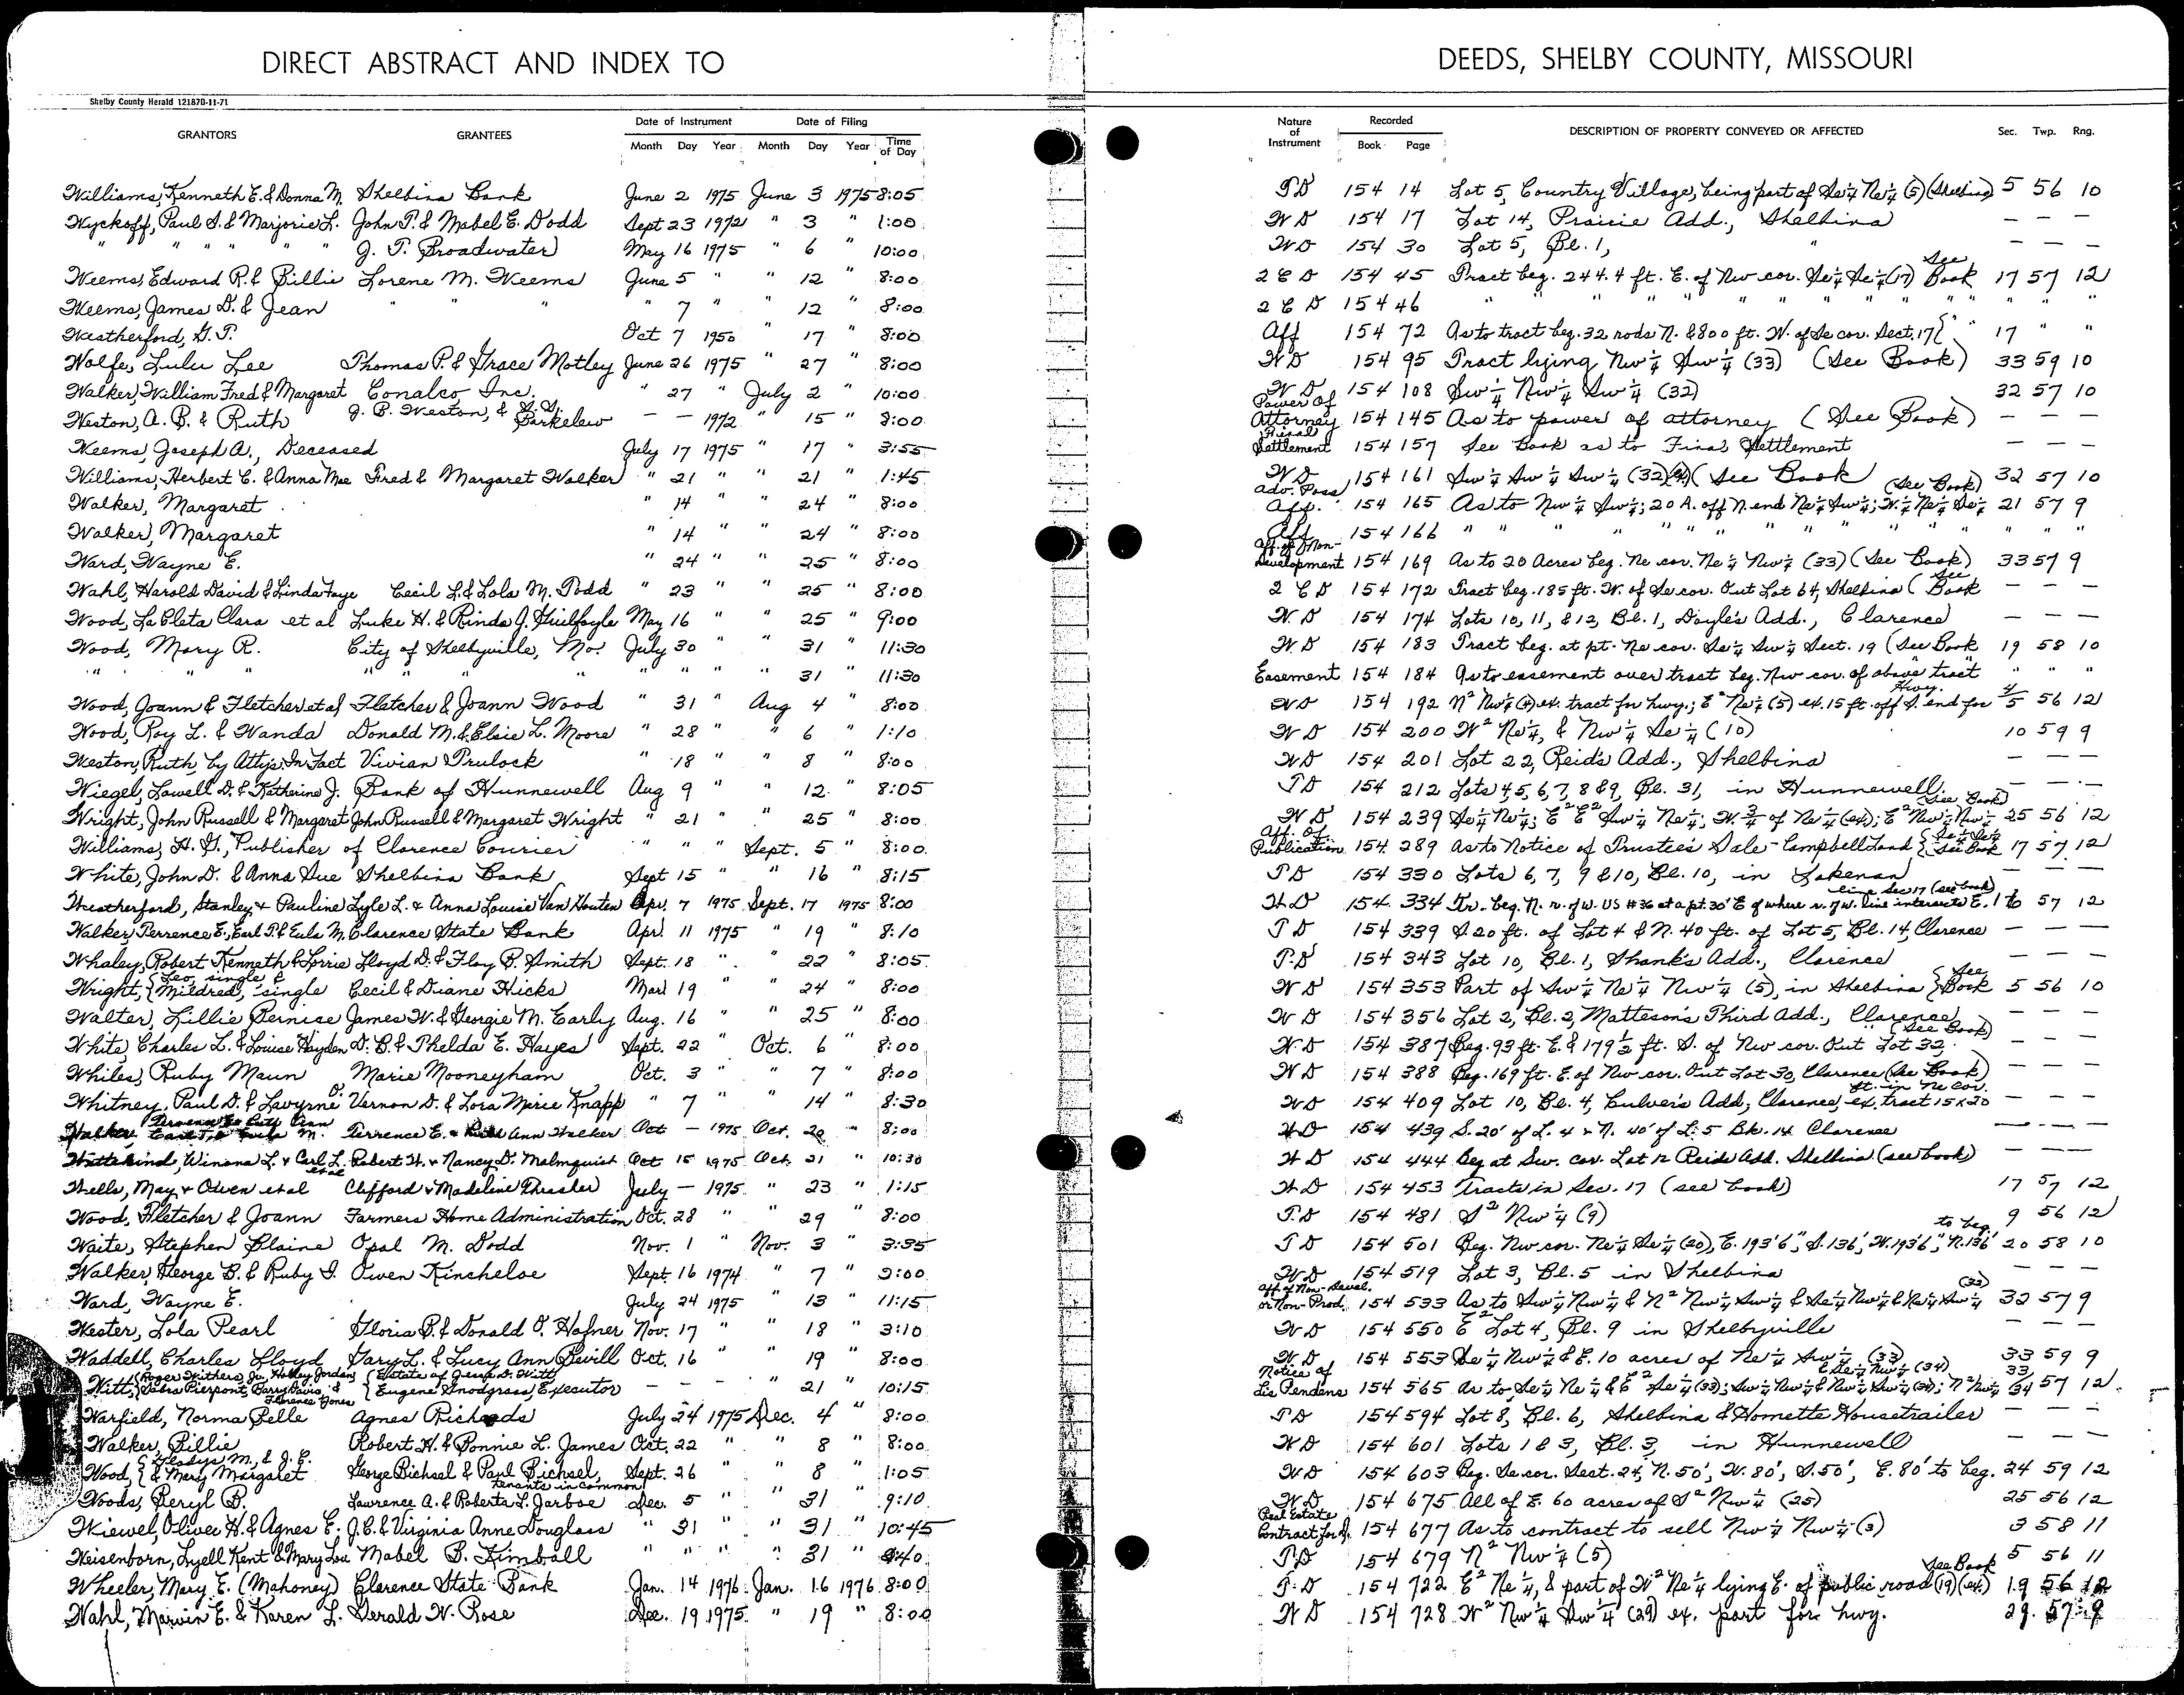 DIRECT ABSTRACT AND INDEX TO
DEEDS, SHELBY COUNTY, MISSOURI
Shelby County Herald 121870-11-71
GRANTORS GRANTEES Date of Instrument Month Day Year Date of Filing Month Day Year Time of Day Nature of Instrument Recorded Book Page DESCRIPTION OF PROPERTY CONVEYED OR AFFECTED Sec. Twp. Rng.
Williams, Kenneth E. & Donna M. Shelbina Bank June 2 1975 June 3 1975 8:05 TD 154 14 Lot 5, Country Village, being part of Se¼ Ne¼ (5) (Shelbina) 5 56 10
Wyckoff, Paul S. & Marjorie L. John T. & Mabel E. Dodd Sept 23 1972 " 3 " 1:00 WD 154 17 Lot 14, Prairie Add., Shelbina — — —
" " " " " J. T. Broadwater May 16 1975 " 6 " 10:00 WD 154 30 Lot 5, Bl. 1, " — — —
Weems, Edward R. & Billie Lorene M. Weems June 5 " " 12 " 8:00 2CD 154 45 Tract beg. 244.4 ft. E. of Nw cor. Se¼ Se¼ (17) See Book 17 57 12
Weems, James D. & Jean " " " " 7 " " 12 " 8:00 2CD 154 46 " " " " " " " " " " " "
Weatherford, G. T. Oct 7 1950 " 17 " 8:00 Aff 154 72 As to tract beg. 32 rods N. & 800 ft. W. of Se cor. Sect. 17 { " " 17 " "
Wolfe, Lulu Lee Thomas P. & Grace Motley June 26 1975 " 27 " 8:00 WD 154 95 Tract lying Nw¼ Sw¼ (33) (See Book) 33 59 10
Walker, William Fred & Margaret Conalco Inc. " 27 " July 2 " 10:00 WD 154 108 Sw¼ Nw¼ Sw¼ (32) 32 57 10
Weston, A. B. & Ruth J. B. Weston, & Barkelew — — 1972 " 15 " 8:00 Power Of Attorney 154 145 As to power of attorney (See Book) — — —
Weems, Joseph A., Deceased July 17 1975 " 17 " 3:55 Final Settlement 154 157 See Book as to Final Settlement — — —
Williams, Herbert C. & Anna Mae Fred & Margaret Walker " 21 " " 21 " 1:45 WD 154 161 Sw¼ Sw¼ Sw¼ (32) (See Book 32 57 10
Walker, Margaret " 14 " " 24 " 8:00 Adv. Poss. Aff. 154 165 As to Nw¼ Sw¼; 20 A. off N. end Ne¼ Sw¼; W.½ Ne¼ Se¼ (See Book) 21 57 9
Walker, Margaret " 14 " " 24 " 8:00 Aff 154 166 " " " " " " " " " " " "
Ward, Wayne E. " 24 " " 25 " 8:00 Aff. of Non-Development 154 169 As to 20 Acres beg. Ne cor. Ne¼ Nw¼ (33) (See Book) 33 57 9
Wahl, Harold David & Linda Faye Cecil L. & Lola M. Todd " 23 " " 25 " 8:00 2CD 154 172 Tract beg. 185 ft. W. of Se cor. Out Lot 64, Shelbina (See Book — — —
Wood, LaCleta Clara et al Luke H. & Rinda J. Guilfoyle May 16 " " 25 " 9:00 WD 154 174 Lots 10, 11, & 12, Bl. 1, Doyle's Add., Clarence — — —
Wood, Mary R. City of Shelbyville, Mo. July 30 " " 31 " 11:30 WD 154 183 Tract beg. at pt. Ne cor. Se¼ Sw¼ Sect. 19 (See Book 19 58 10
" " " " " " " " " 31 " 11:30 Easement 154 184 As to easement over tract beg. Nw cor. of above tract " " "
Wood, Joann & Fletcher et al Fletcher & Joann Wood " 31 " Aug 4 " 8:00 WD 154 192 N² Nw¼ (4) ex. tract for hwy.; E² Ne¼ (5) ex. 15 ft. off S. end for Hwy. 4/5 56 12
Wood, Roy L. & Wanda Donald M. & Elsie L. Moore " 28 " " 6 " 1:10 WD 154 200 W² Ne¼, & Nw¼ Se¼ (10) 10 59 9
Weston, Ruth, by Atty. In Fact Vivian Trulock " 18 " " 8 " 8:00 WD 154 201 Lot 22, Reid's Add., Shelbina — — —
Wiegel, Lowell D. & Katherine J. Bank of Hunnewell Aug 9 " " 12 " 8:05 TD 154 212 Lots 4, 5, 6, 7, 8 & 9, Bl. 31, in Hunnewell — — —
Wright, John Russell & Margaret John Russell & Margaret Wright " 21 " " 25 " 8:00 WD 154 239 Se¼ Ne¼; E² E² Sw¼ Ne¼; W.¾ of Ne¼ (24); E² Nw¼ Nw¼ (See Book) 25 56 12
Williams, H. G., Publisher of Clarence Courier " " " Sept. 5 " 8:00 Aff. Of Publication 154 289 As to Notice of Trustee's Sale - Campbell Land { Se¼ Se¼ See Book 17 57 12
White, John D. & Anna Sue Shelbina Bank Sept 15 " " 16 " 8:15 TD 154 330 Lots 6, 7, 9 & 10, Bl. 10, in Lakenan — — —
Weatherford, Stanley & Pauline Lyle L. & Anna Louise Van Houten Apr. 7 1975 Sept. 17 1975 8:00 WD 154 334 Tr. beg. N. r. of w. US #36 at a pt. 30' E of where r. of w. line intersects E. line Sec 17 (see book) 57 12
Walker, Terrence E., Earl T. & Eula M. Clarence State Bank Apr. 11 1975 " 19 " 8:10 TD 154 339 S. 20 ft. of Lot 4 & N. 40 ft. of Lot 5, Bl. 14, Clarence — — —
Whaley, Robert Kenneth & Lorrie Lloyd D. & Floy B. Smith Sept. 18 " " 22 " 8:05 TD 154 343 Lot 10, Bl. 1, Shank's Add., Clarence — — —
Wright, { Leo, single & Mildred, single Cecil & Diane Hicks Mar 19 " " 24 " 8:00 WD 154 353 Part of Sw¼ Ne¼ Nw¼ (5), in Shelbina { See Book 5 56 10
Walter, Lillie Bernice James W. & Georgie M. Early Aug. 16 " " 25 " 8:00 WD 154 356 Lot 2, Bl. 2, Matteson's Third Add., Clarence — — —
White, Charles L. & Louise Hayden D. B. & Thelda E. Hayes Sept. 22 " Oct. 6 " 8:00 WD 154 387 Beg. 93 ft. E. & 179½ ft. S. of Nw cor. Out Lot 32, " (See Book) — — —
Whiles, Ruby Maun Marie Mooneyham Oct. 3 " " 7 " 8:00 WD 154 388 Beg. 169 ft. E. of Nw cor. Out Lot 30, Clarence (See Book) — — —
Whitney, Paul D. & Lavyrne O. Vernon D. & Lora Marie Knapp " 7 " " 14 " 8:30 WD 154 409 Lot 10, Bl. 4, Culver's Add., Clarence, ex. tract 15 x 20 ft. in Ne cor. — — —
Walker, Terrence E. & Ruth Ann Walker Oct — 1975 Oct. 20 " 8:00 WD 154 439 S. 20' of L. 4 & N. 40' of L. 5 Bk. 14 Clarence — — —
Winona L. & Carl L. et al Robert H. & Nancy D. Malmquist Oct 15 1975 Oct. 21 " 10:30 WD 154 444 Beg at Sw. cor. Lot 12 Reids Add. Shelbina (see book) — — —
Wells, May & Owen et al Clifford & Madeline Thrasher July — 1975 " 23 " 1:15 WD 154 453 Tracts in Sec. 17 (see book) 17 57 12
Wood, Fletcher & Joann Farmers Home Administration Oct. 28 " " 29 " 8:00 TD 154 481 S² Nw¼ (9) 9 56 12
Waite, Stephen Blaine Opal M. Dodd Nov. 1 " Nov. 3 " 3:35 TD 154 501 Beg. Nw cor. Ne¼ Se¼ (20), E. 193'6", S. 136', W. 193'6", N. 136' to beg. 20 58 10
Walker, George B. & Ruby I. Owen Kincheloe Sept. 16 1974 " 7 " 3:00 WD 154 519 Lot 3, Bl. 5 in Shelbina — — —
Ward, Wayne E. July 24 1975 " 13 " 11:15 Aff. of Non-Devel. or Non-Prod. 154 533 As to Sw¼ Nw¼ & N² Nw¼ Sw¼ & Se¼ Nw¼ & Ne¼ Sw¼ (32) 32 57 9
Wester, Lola Pearl Gloria B. & Donald O. Hafner Nov. 17 " " 18 " 3:10 WD 154 550 E² Lot 4, Bl. 9 in Shelbyville — — —
Waddell, Charles Lloyd Gary L. & Lucy Ann Bevill Oct. 16 " " 19 " 8:00 WD 154 553 Se¼ Nw¼ & E. 10 acres of Ne¼ Sw¼ (33) 33 59 9
Witt, { Roger Withers, Jr., Holley Jordan, Debra Pierpont, Barry Davis, & Florence Jones { Estate of Jesse D. Witt, Eugene Snodgrass, Executor — — — " 21 " 10:15 Notice of Lis Pendens 154 565 As to Se¼ Ne¼ & E² Se¼ (33); Sw¼ Nw¼ & Nw¼ Sw¼ (34); N² Nw¼ & Se¼ Nw¼ (34) 33 34 57 12
Warfield, Norma Belle Agnes Richards July 24 1975 Dec. 4 " 8:00 TD 154 594 Lot 8, Bl. 6, Shelbina & Homette Housetrailer — — —
Walker, Billie Robert H. & Bonnie L. James Oct. 22 " " 8 " 8:00 WD 154 601 Lots 1 & 3, Bl. 3, in Hunnewell — — —
Wood, { Gladys M., & J. E. & Mary Margaret George Bichsel & Paul Bichsel, tenants in common Sept. 26 " " 8 " 1:05 WD 154 603 Beg. Se cor. Sect. 24, N. 50', W. 80', S. 50', E. 80' to beg. 24 59 12
Woods, Beryl B. Lawrence A. & Roberta L. Jarboe Dec. 5 " " 31 " 9:10 WD 154 675 All of E. 60 acres of S² Nw¼ (25) 25 56 12
Wiewel, Oliver H. & Agnes E. J. C. & Virginia Anne Douglass " 31 " " 31 " 10:45 Real Estate Contract for D. 154 677 As to contract to sell Nw¼ Nw¼ (3) 3 58 11
Weisenborn, Lyell Kent & Mary Lou Mabel B. Kimball " " " " 31 " 9:40 TD 154 679 N² Nw¼ (5) 5 56 11
Wheeler, Mary E. (Mahoney) Clarence State Bank Jan. 14 1976 Jan. 16 1976 8:00 TD 154 722 E² Ne¼, & part of W² Ne¼ lying E. of public road (19) (ex.) See Book 19 56 12
Wahl, Marvin E. & Karen L. Gerald W. Rose Dec. 19 1975 " 19 " 8:00 WD 154 728 W² Nw¼ Sw¼ (29) ex. part for hwy. 29 57 9